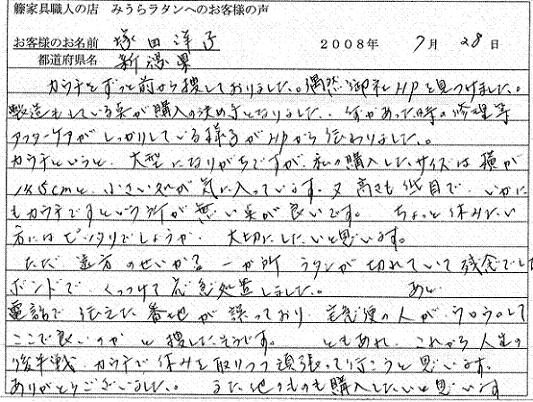 籐家具職人の店 みうらラタンへのお客様の声
お客様のお名前 塚田洋子 2008年 7月 28日
都道府県名 新潟県
カウチをずっと前から捜しておりました。偶然御社HPを見つけました。
製造もしている点が購入の決め手となりました。何かあった時の修理等
アフターケアがしっかりしている様子がHPから伝わりました。
カウチというと、大型になりがちですが、私の購入したサイズは横が
145cmと、小さい処が気に入っています。又高さも低目で、いかに
もカウチですという所が無い点が良いです。 ちょっと休みたい
方にはピッタリでしょうか 大切にしたいと思います。
ただ 遠方のせいか? 一か所 ラタンが切れていて残念でした
ボンドで、くっつけて応急処置しました。 あと
電話で伝えた番地が誤っており、宅急便の人がウロウロして
ここで良いのかと捜したそうです。 ともあれ、これから人生の
後半戦、カウチで休みを取りつつ頑張って行こうと思います。
ありがとうございました。 また他のものも購入したいと思います